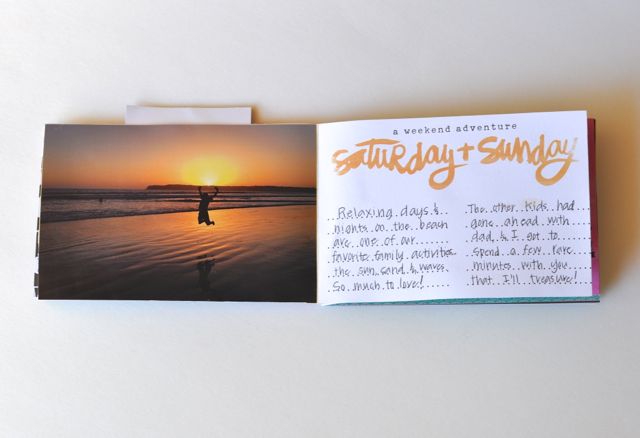 a weekend adventure
Saturday + Sunday
Relaxing days &
nights on the beach
are one of our
favorite family activities
the sun, sand & waves
So much to love!
The other kids had
gone ahead with
dad & I got to
spend a few rare
minutes with you
that I'll treasure!